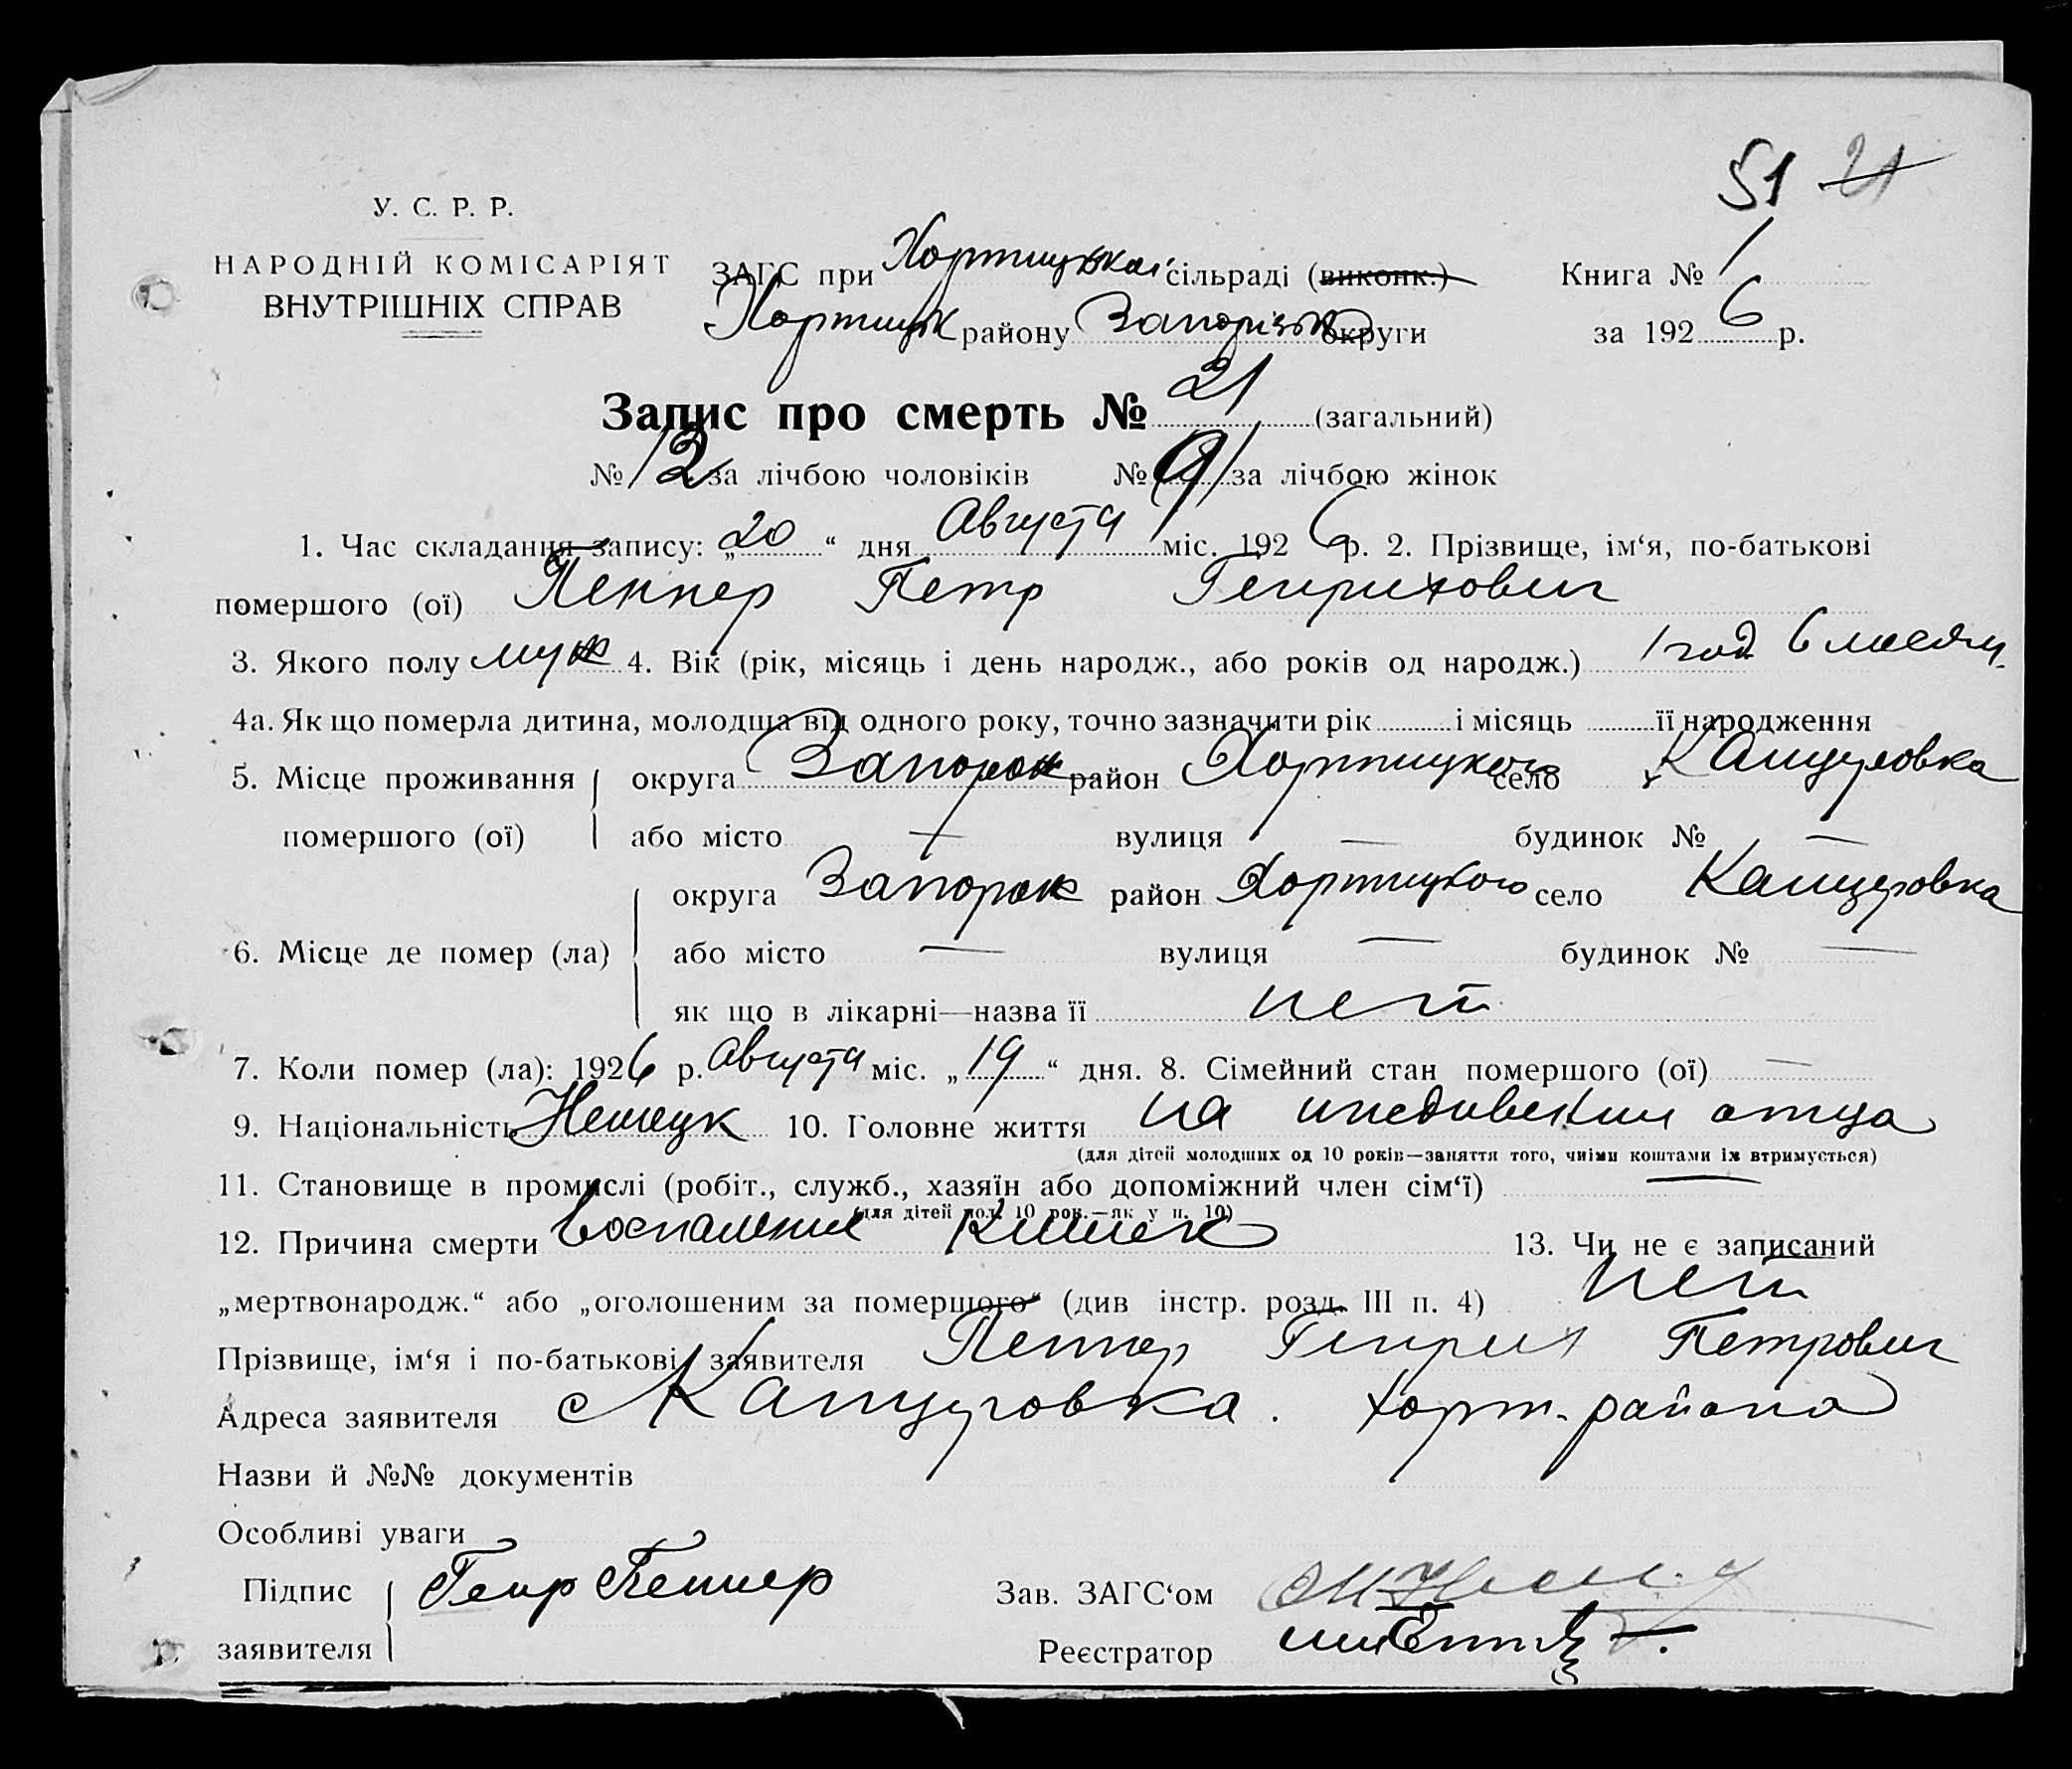 51 21
У. С. Р. Р.
НАРОДНІЙ КОМІСАРІЯТ
ВНУТРІШНІХ СПРАВ
ЗАГС при Хортицької сільраді (виконк.)
Хортицьк району Запорізьк округи
Книга № 1
за 1926 р.
Запис про смерть № 21 (загальний)
№ 12 за лічбою чоловіків № 9 за лічбою жінок
1. Час складання запису: „20“ дня Августа міс. 1926 р. 2. Прізвище, ім‘я, по-батькові
помершого (ої) Пеннер Петр Генрихович
3. Якого полу муж 4. Вік (рік, місяць і день народж., або років од народж.) 1 год 6 месяц.
4а. Як що померла дитина, молодша від одного року, точно зазначити рік і місяць її народження
5. Місце проживання округа Запорож район Хортицкого село Канцеровка
помершого (ої) або місто — вулиця — будинок № —
округа Запорож район Хортицкого село Канцеровка
6. Місце де помер (ла) або місто — вулиця — будинок № —
як що в лікарні—назва її нет
7. Коли помер (ла): 1926 р. Августа міс. „19“ дня. 8. Сімейний стан помершого (ої) —
9. Національність Немецк 10. Головне життя на иждивении отца
(для дітей молодших од 10 років—заняття того, чиїми коштами їх втримується)
11. Становище в промислі (робіт., служб., хазяїн або допоміжний член сім‘ї) —
(для дітей мол. 10 рок.—як у п. 10)
12. Причина смерти Воспаление Кишек 13. Чи не є записаний
„мертвонародж.“ або „оголошеним за помершого“ (див інстр. розд. III п. 4) нет
Прізвище, ім‘я і по-батькові заявителя Пеннер Генрих Петрович
Адреса заявителя с Канцеровка. Хорт. района
Назви й №№ документів
Особливі уваги
Підпис Генр Пеннер Зав. ЗАГС‘ом
заявителя Реєстратор